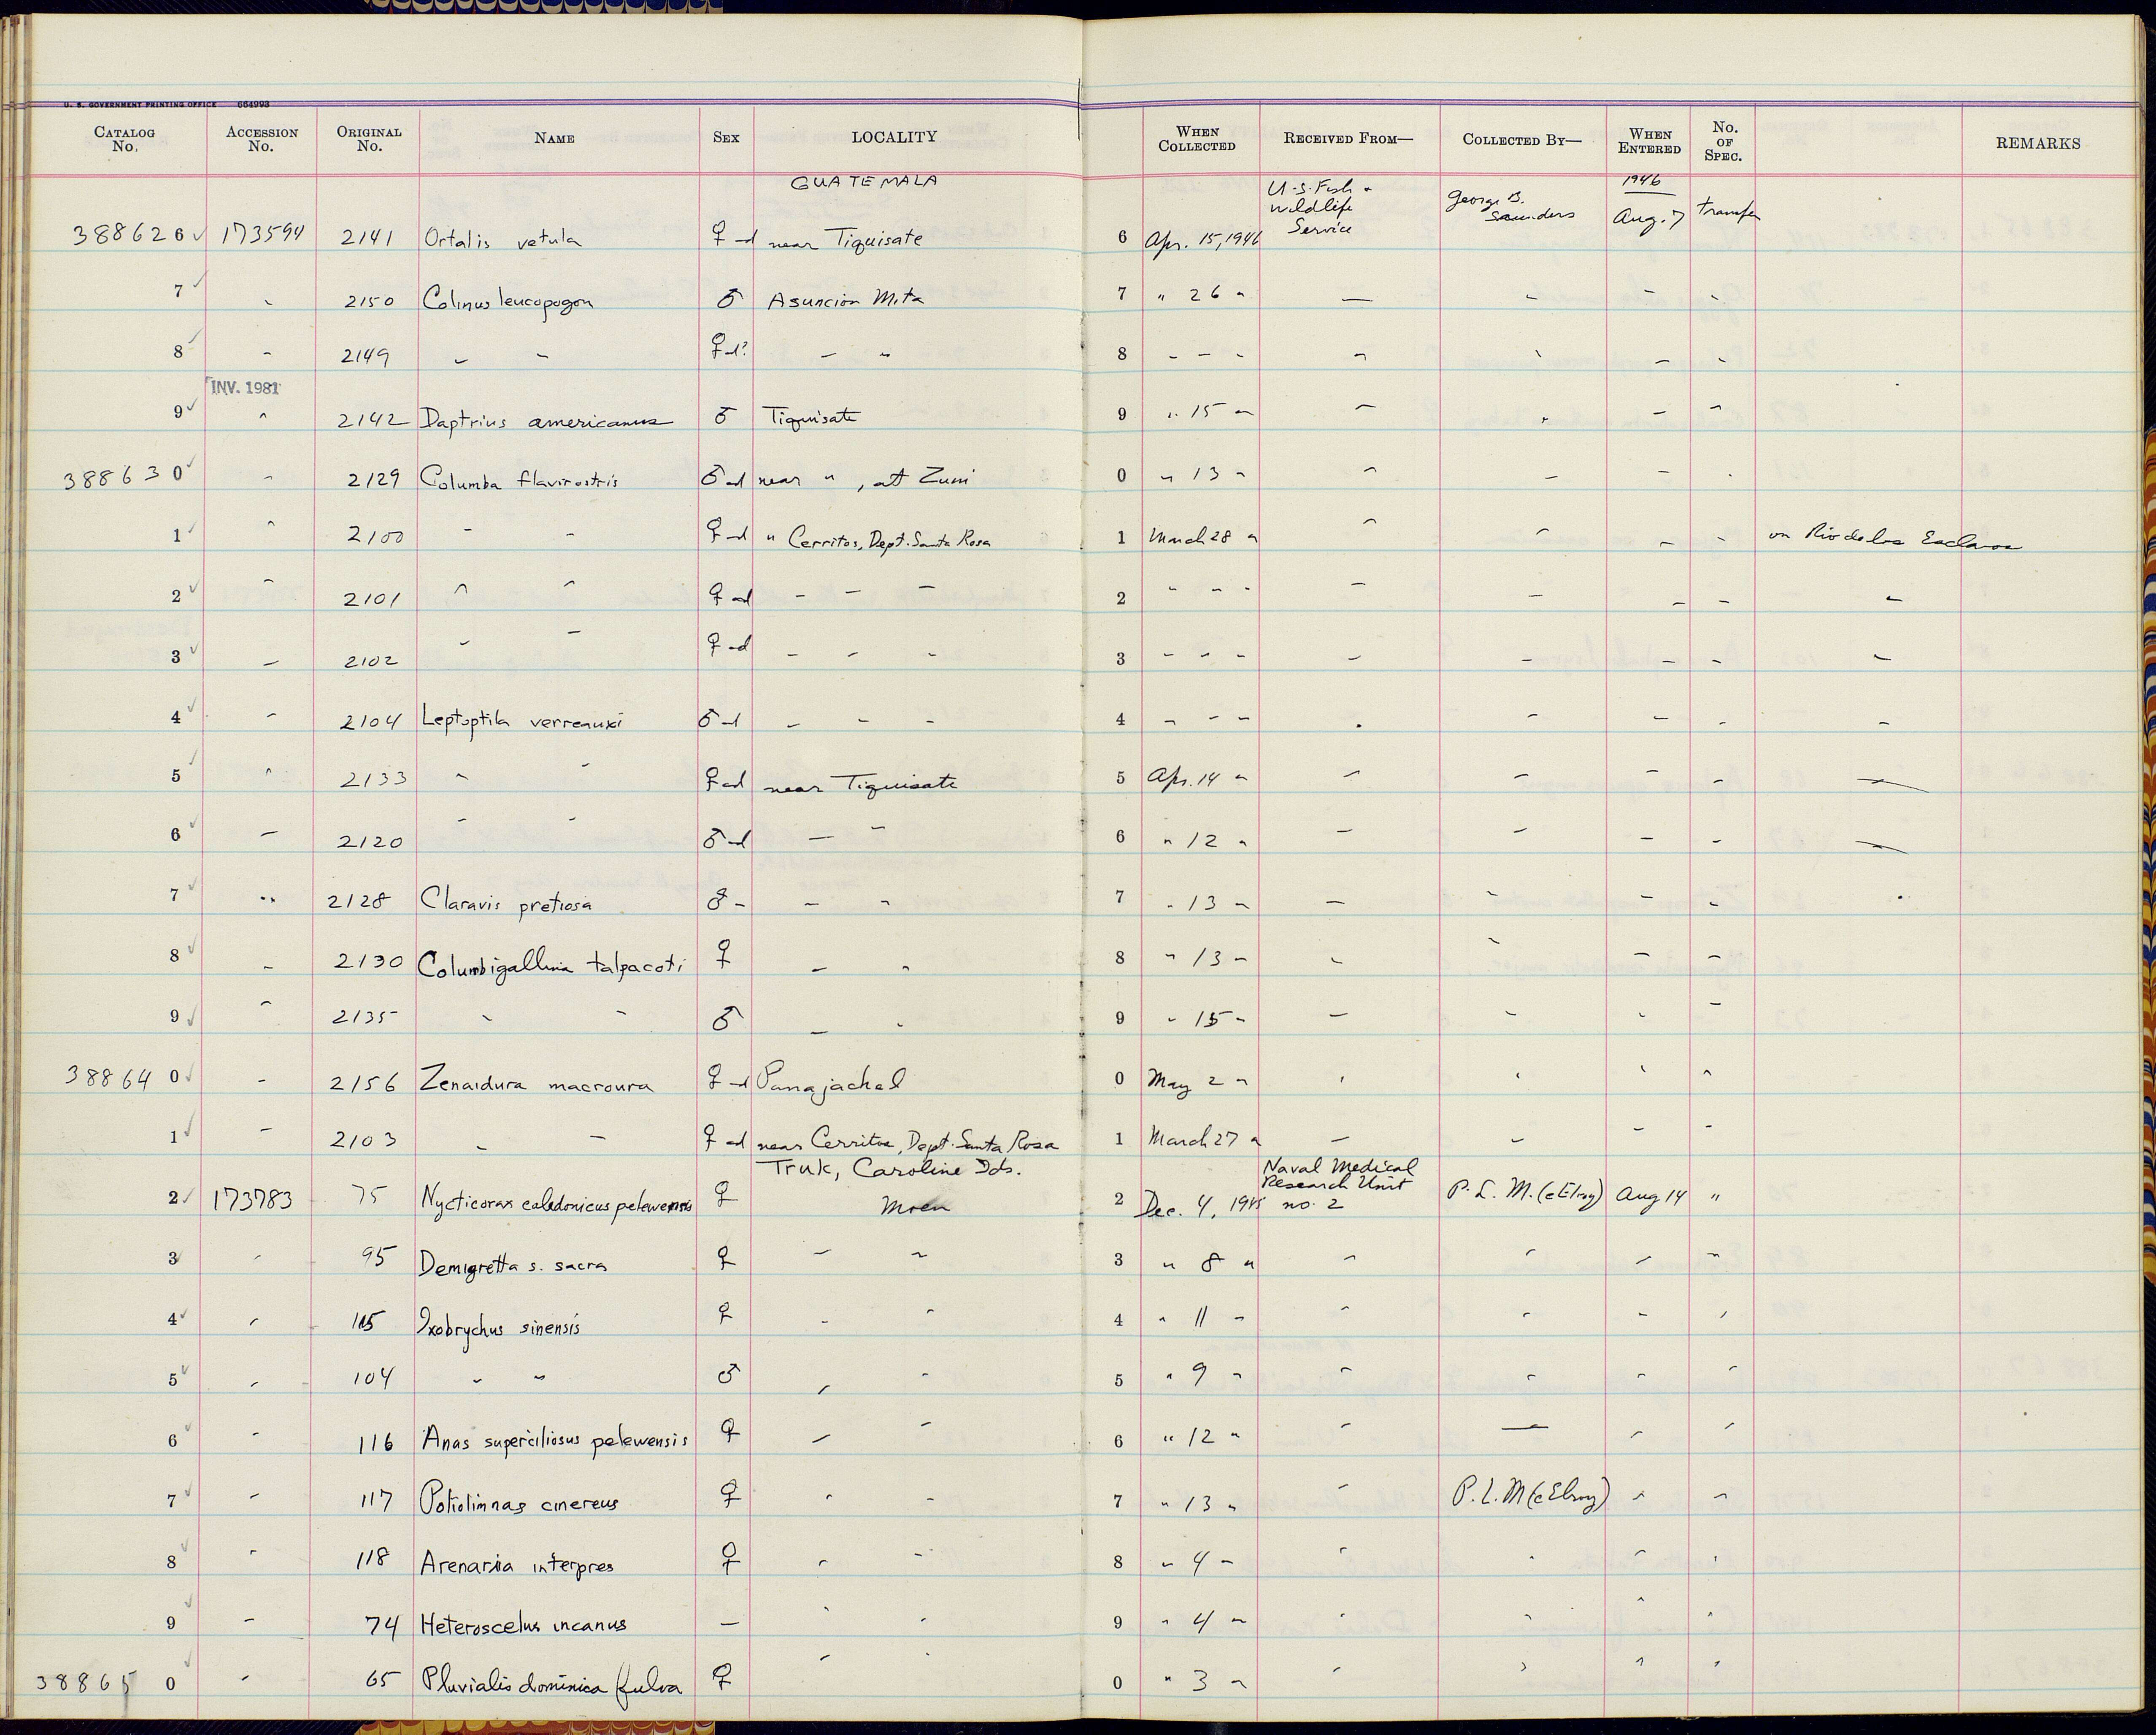 U. S. GOVERNMENT PRINTING OFFICE 654993
CATALOG No. ACCESSION No. ORIGINAL No. NAME SEX LOCALITY WHEN COLLECTED RECEIVED FROM— COLLECTED BY— WHEN ENTERED No. OF SPEC. REMARKS
GUATEMALA U.S. Fish & Wildlife Service George B. Saunders 1946
388626 ✓ 173594 2141 Ortalis vetula ♀ ad near Tiquisate 6 Apr. 15, 1946 Aug. 7 transfer
7 ✓ " 2150 Colinus leucopogon ♂ Asuncion Mita 7 " 26 " " " " "
8 ✓ " 2149 " " ♀ ad? " " 8 " " " " " " "
INV. 1981
9 ✓ " 2142 Daptrius americanus ♂ Tiquisate 9 " 15 " " " " "
388630 ✓ " 2129 Columba flavirostris ♂ ad near " , at Zuni 0 " 13 " " " " "
1 ✓ " 2100 " " ♀ ad " Cerritos, Dept. Santa Rosa 1 March 28 " " " " " on Rio de los Esclavos
2 ✓ " 2101 " " ♀ ad " " " 2 " " " " " " " "
3 ✓ " 2102 " " ♀ ad " " " 3 " " " " " " " "
4 ✓ " 2104 Leptoptila verreauxi ♂ ad " " " 4 " " " " " " " "
5 ✓ " 2133 " " ♀ ad near Tiquisate 5 Apr. 14 " " " " " —
6 ✓ " 2120 " " ♂ ad " " 6 " 12 " " " " " —
7 ✓ " 2128 Claravis pretiosa ♂ " " " 7 " 13 " " " " "
8 ✓ " 2130 Columbigallina talpacoti ♀ " " 8 " 13 " " " " "
9 ✓ " 2135 " " ♂ " " 9 " 15 " " " " "
388640 ✓ " 2156 Zenaidura macroura ♀ ad Panajachel 0 May 2 " " " " "
1 ✓ " 2103 " " ♀ ad near Cerritos, Dept. Santa Rosa 1 March 27 " " " " "
Truk, Caroline Ids. Naval Medical Research Unit no. 2
2 ✓ 173783 75 Nycticorax caledonicus pelewensis ♀ Moen 2 Dec. 4, 1945 P. L. McElroy Aug 14 "
3 " 95 Demigretta s. sacra ♀ " " 3 " 8 " " " " "
4 ✓ " 115 Ixobrychus sinensis ♀ " " 4 " 11 " " " " "
5 ✓ " 104 " " ♂ " " 5 " 9 " " " " "
6 ✓ " 116 Anas superciliosus pelewensis ♀ " " 6 " 12 " " — " "
7 ✓ " 117 Poliolimnas cinereus ♀ " " 7 " 13 " " P. L. McElroy " "
8 ✓ " 118 Arenaria interpres ♀ " " 8 " 4 " " " " "
9 ✓ " 74 Heteroscelus incanus — " " 9 " 4 " " " " "
388650 ✓ " 65 Pluvialis dominica fulva ♀ " " 0 " 3 " " " " "